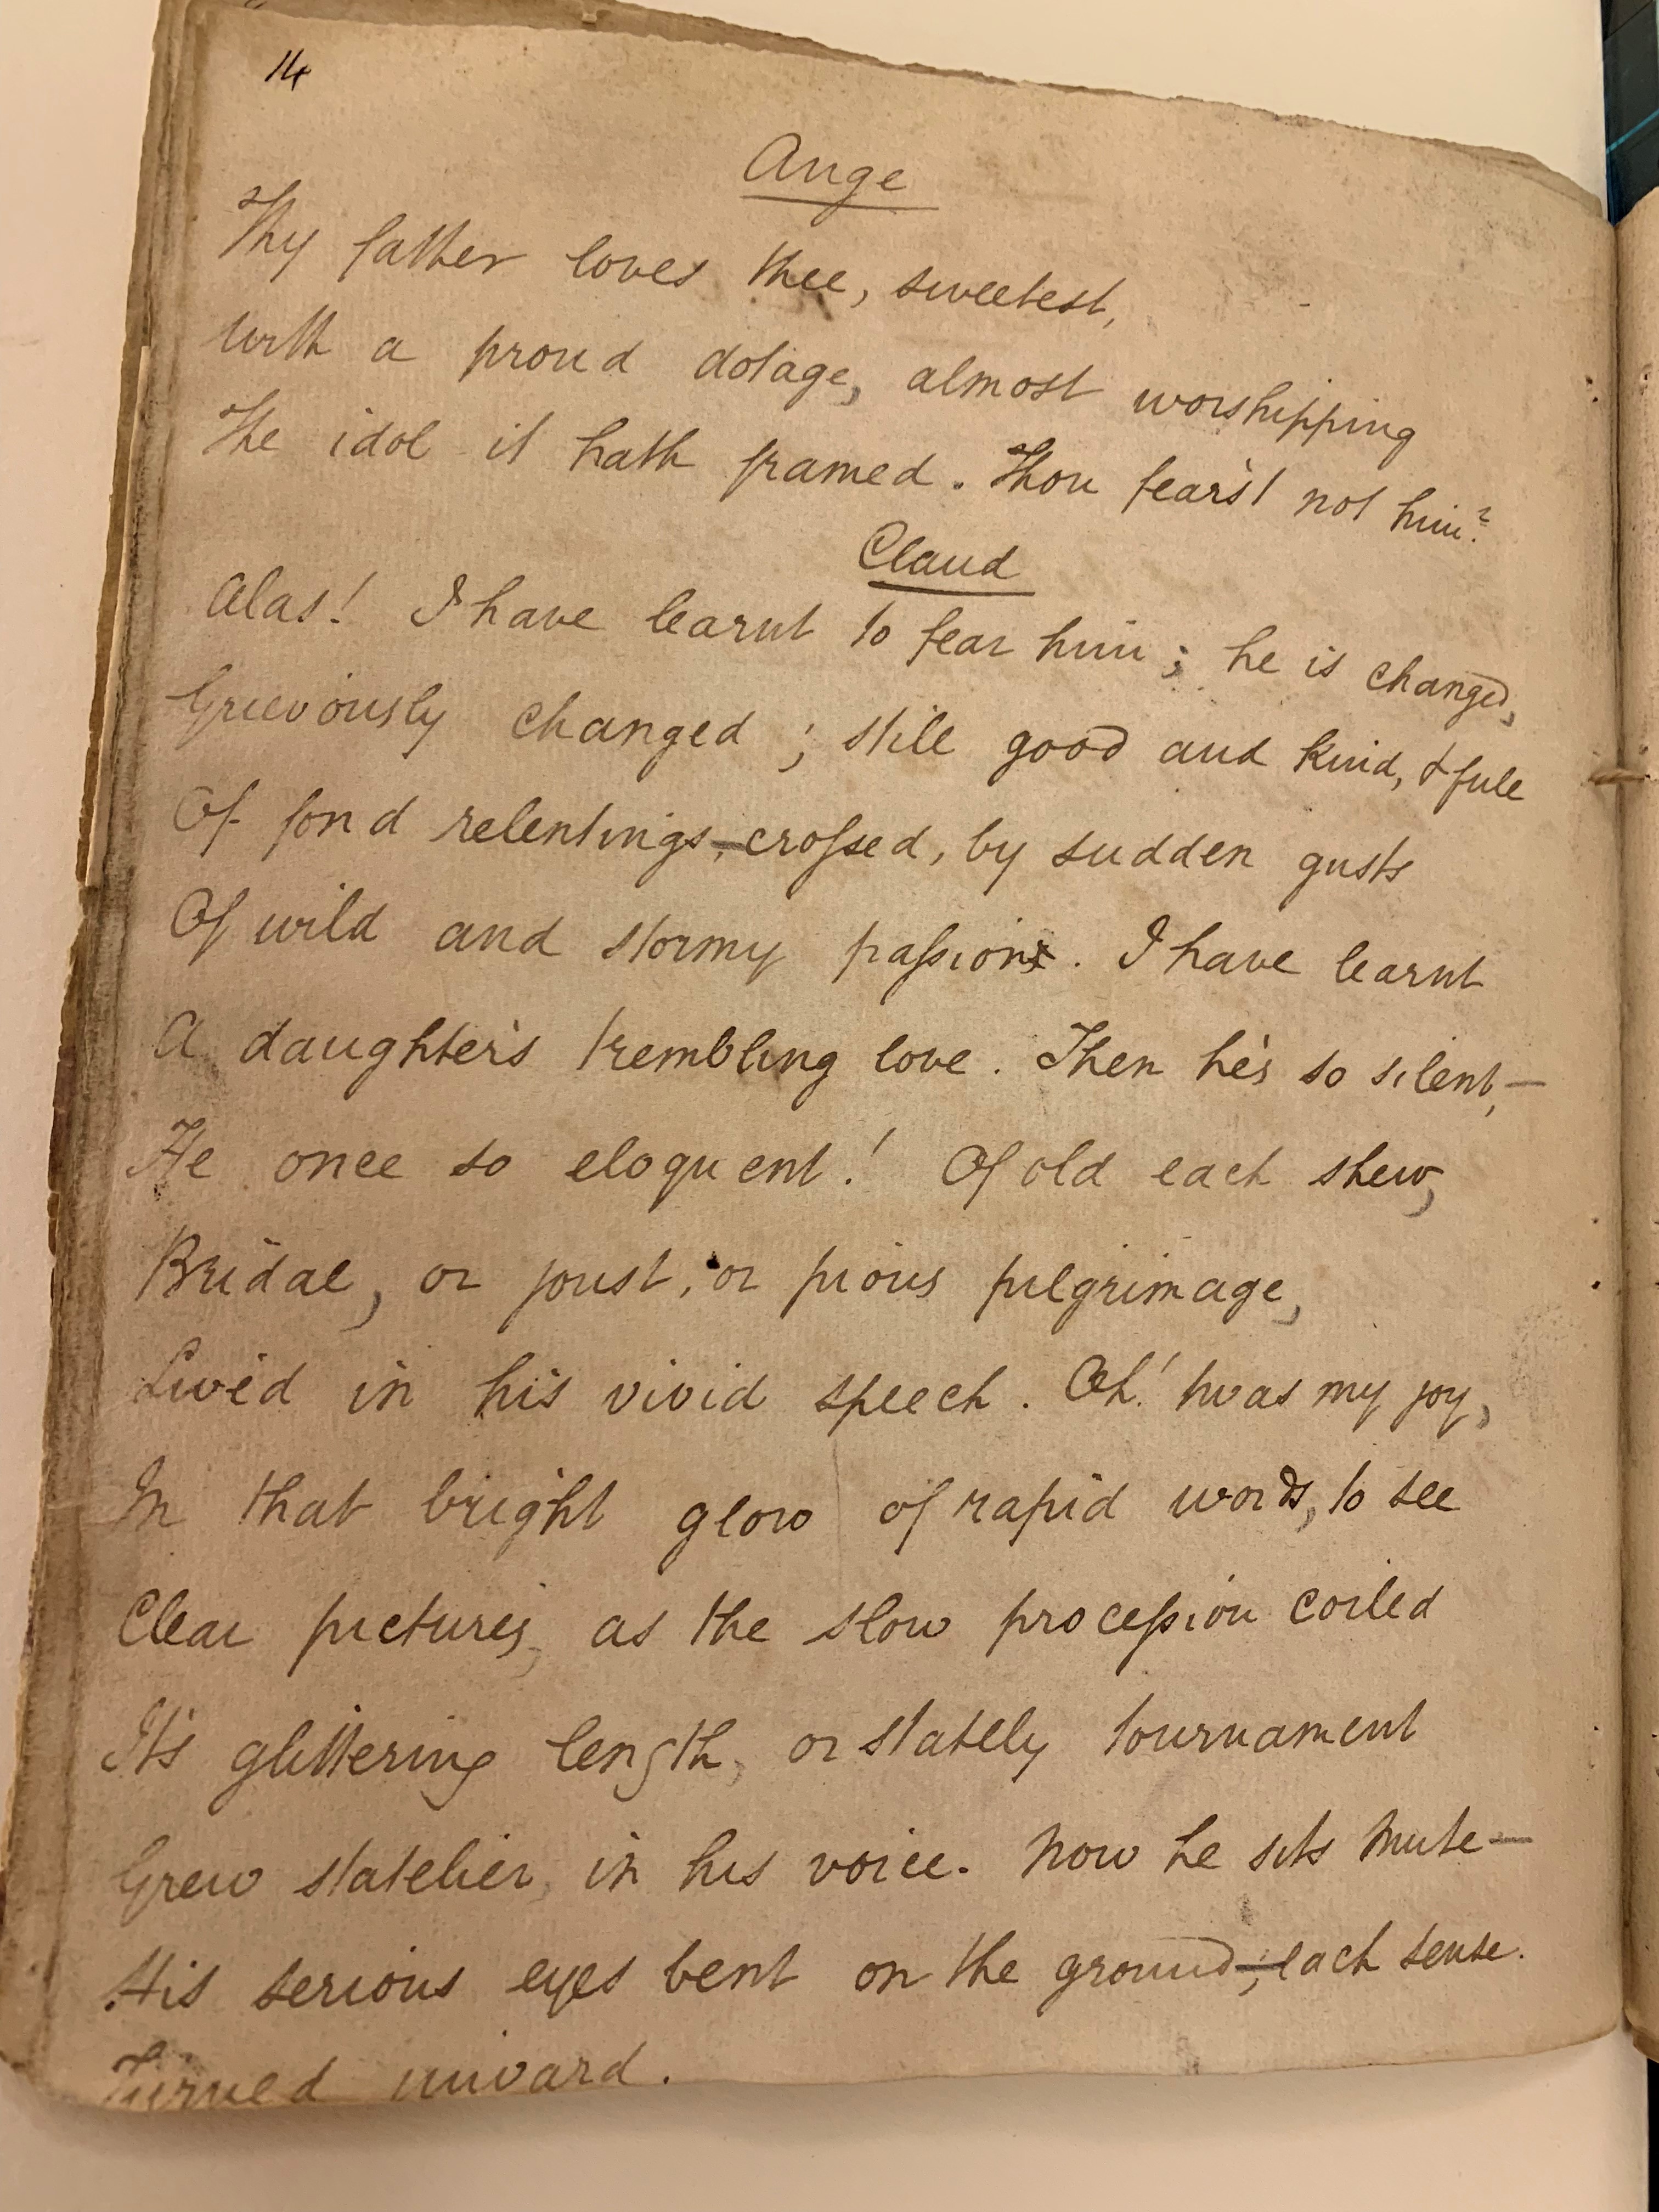 14
Ange
Thy father loves thee, sweetest,
With a proud dotage, almost worshipping
The idol it hath framed. Thou fear'st not him?
Claud
Alas! I have learnt to fear him; he is changed,
Grievously changed; still good and kind, & full
Of fond relentings,—crossed, by sudden gusts
Of wild and stormy passion. I have learnt
A daughter's trembling love. Then he's so silent,—
He once so eloquent! Of old each shew,
Bridal, or joust, or pious pilgrimage,
Lived in his vivid speech. Oh! twas my joy,
In that bright glow of rapid words, to see
Clear pictures, as the slow procession coiled
It's glittering length, or stately tournament
Grew statelier, in his voice. Now he sits mute—
His serious eyes bent on the ground,—each sense
Turned inward.